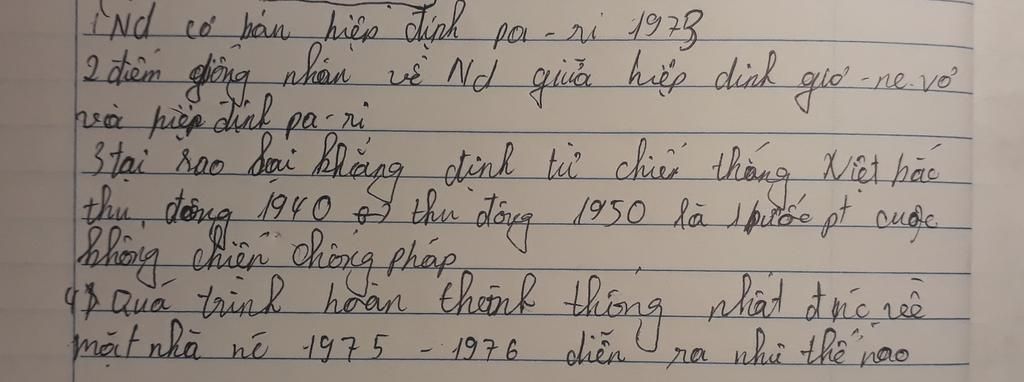 1 Nd cơ bản hiệp định pa-ri 1973
2 điểm giống nhau về Nd giữa hiệp định giơ-ne-vơ
và hiệp định pa-ri
3 tại sao lại khẳng định từ chiến thắng Việt bắc
thu đông 1940 thu đông 1950 là 1 bước pt cuộc
kháng chiến chống pháp
4) Quá trình hoàn thành thống nhất đnc về
mặt nhà nc 1975 - 1976 diễn ra như thế nào